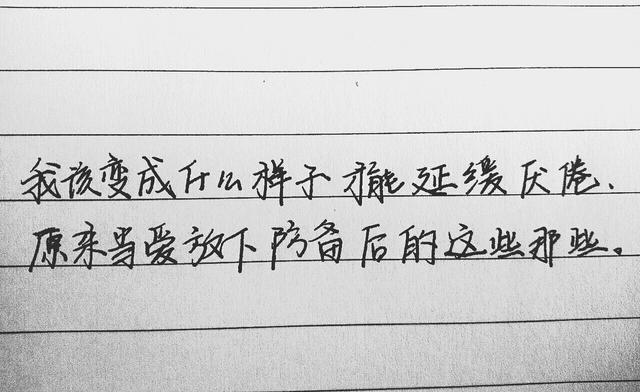 我该变成什么样子才能延缓厌倦、
原来当爱放下防备后的这些那些。